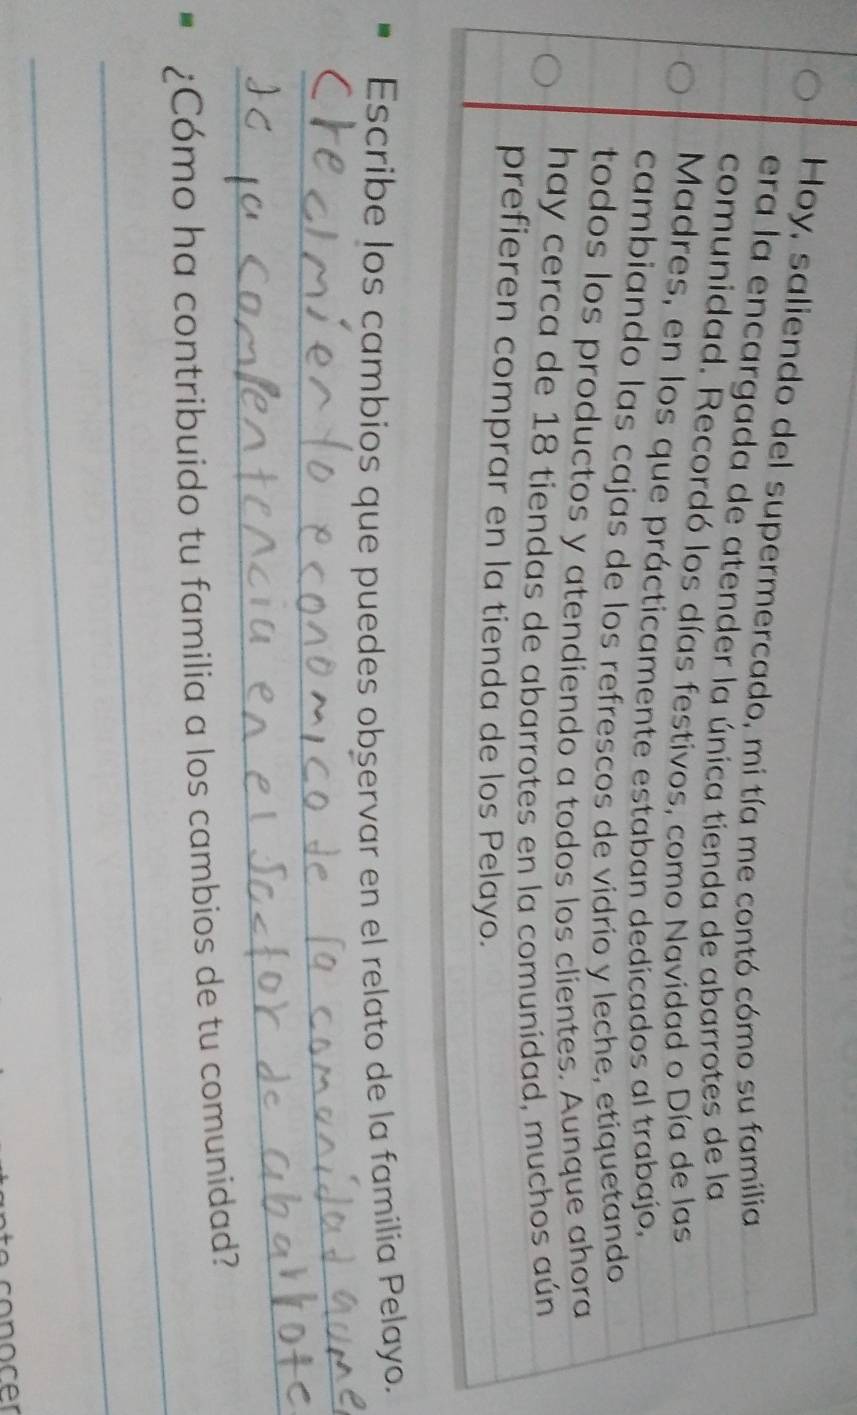 Hoy, saliendo del supermercado, mi tía me contó cómo su familia
era la encargada de atender la única tienda de abarrotes de la
comunidad. Recordó los días festivos, como Navidad o Día de las
Madres, en los que prácticamente estaban dedicados al trabajo,
cambiando las cajas de los refrescos de vidrio y leche, etiquetando
todos los productos y atendiendo a todos los clientes. Aunque ahora
hay cerca de 18 tiendas de abarrotes en la comunidad, muchos aún
prefieren comprar en la tienda de los Pelayo.
Escribe los cambios que puedes observar en el relato de la familia Pelayo.
Crecimiento economico de la comunidad aume
de la compentencia en el sector de abarrote
¿Cómo ha contribuido tu familia a los cambios de tu comunidad?
conocer